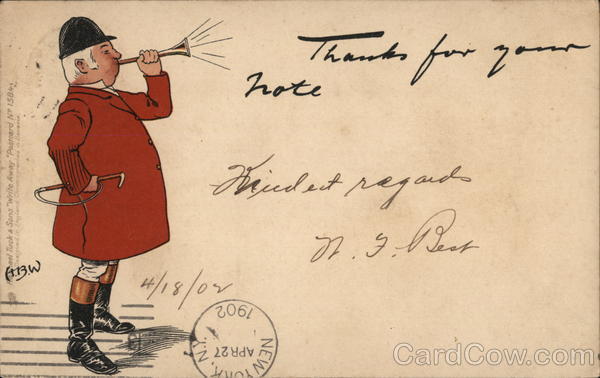 Thanks for your
Note
Kindest regards
N. F. Best
4/18/02
H.B.W
Raphael Tuck & Sons' "Write Away" Postcard No 1584
NEW YORK, N.Y.
APR 27
1902
CardCow.com